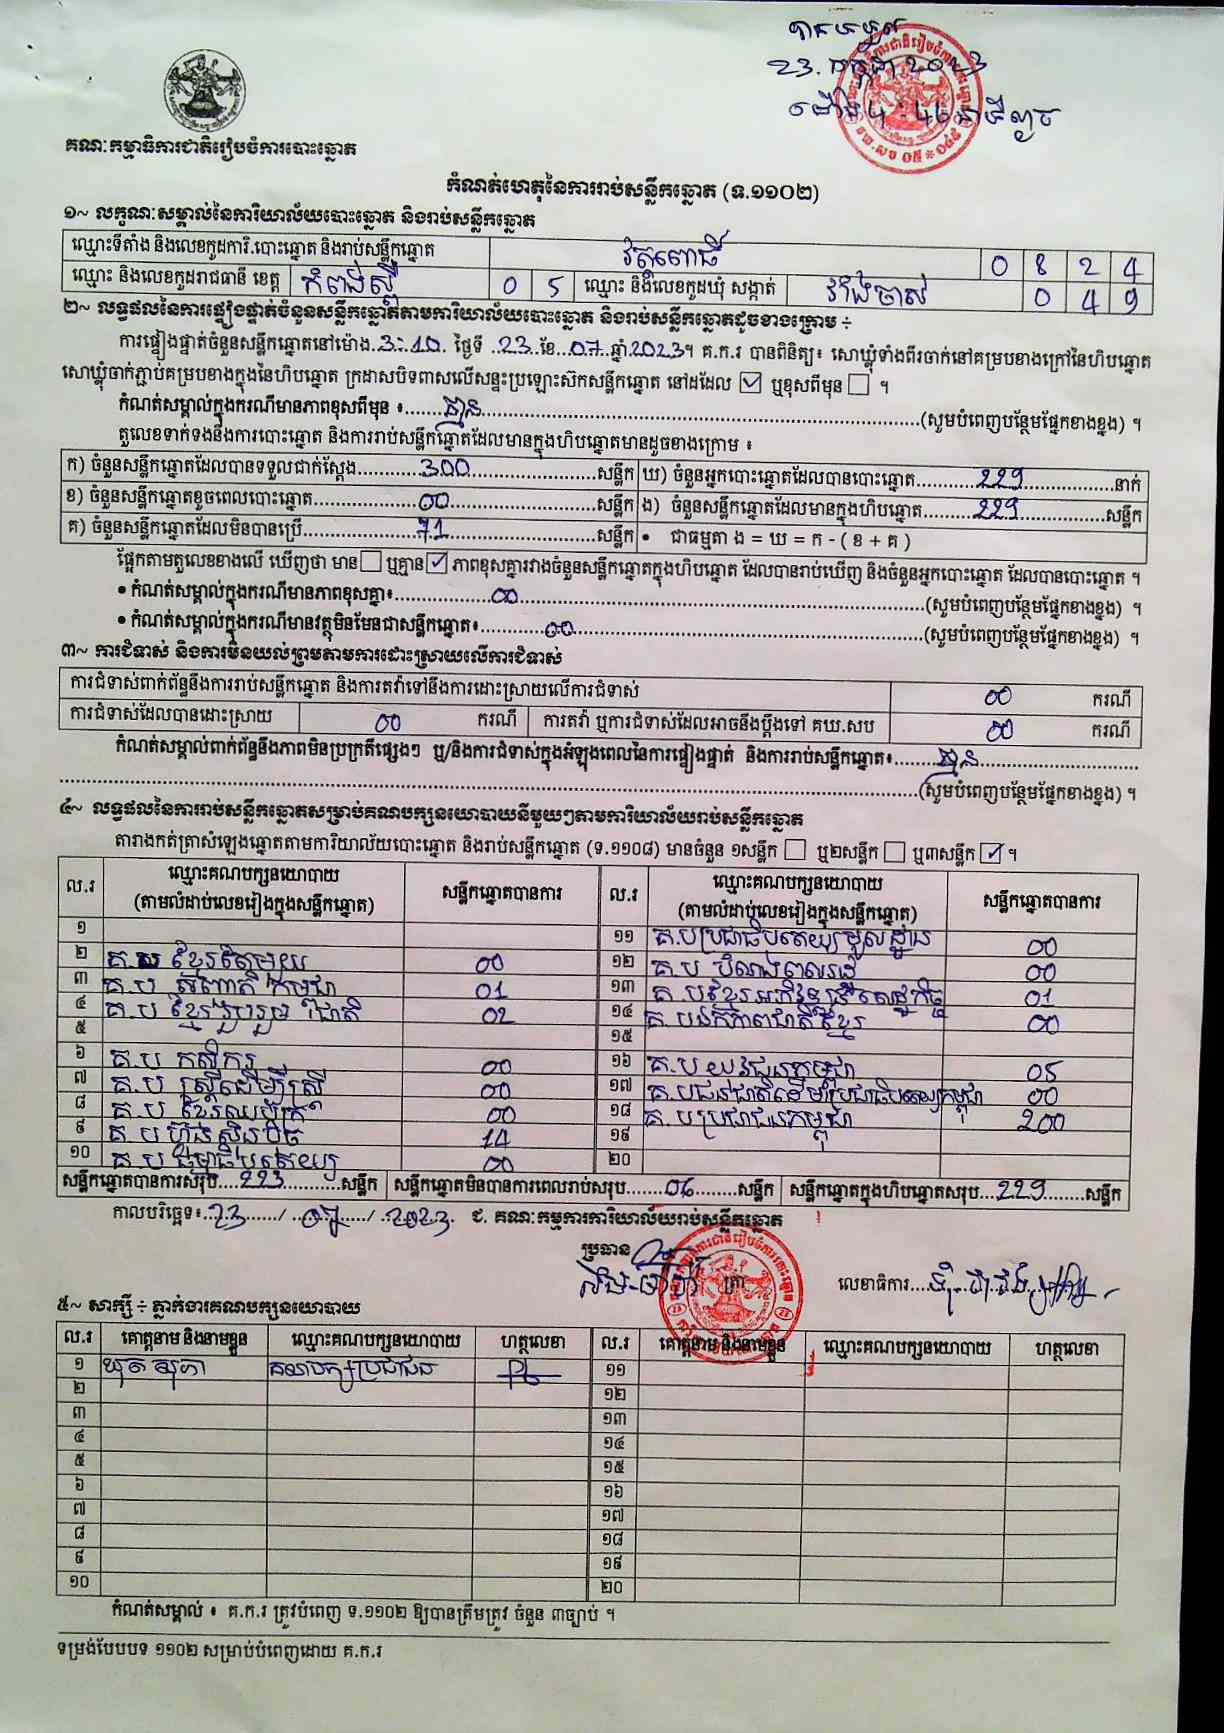 បានទទួល
23. កក្កដា 2023
គណៈកម្មាធិការជាតិរៀបចំការបោះឆ្នោត
កំណត់ហេតុនៃការរាប់សន្លឹកឆ្នោត (ទ.១១០២)
១~ លក្ខណៈសម្គាល់នៃការិយាល័យបោះឆ្នោត និងរាប់សន្លឹកឆ្នោត
ឈ្មោះទីតាំង និងលេខកូដការិ.បោះឆ្នោត និងរាប់សន្លឹកឆ្នោត វត្តពោធិ៍ 0 8 2 4
ឈ្មោះ និងលេខកូដរាជធានី ខេត្ត កំពង់ស្ពឺ 0 5 ឈ្មោះ និងលេខកូដឃុំ សង្កាត់ វាំងចាស់ 0 4 9
២~ លទ្ធផលនៃការផ្ទៀងផ្ទាត់ចំនួនសន្លឹកឆ្នោតតាមការិយាល័យបោះឆ្នោត និងរាប់សន្លឹកឆ្នោតដូចខាងក្រោម ÷
ការផ្ទៀងផ្ទាត់ចំនួនសន្លឹកឆ្នោតនៅម៉ោង..3:10. ថ្ងៃទី ..23..ខែ...07..ឆ្នាំ.2023។ គ.ក.រ បានពិនិត្យ៖ សោឃ្លុំទាំងពីរចាក់នៅគម្របខាងក្រៅនៃហិបឆ្នោត
សោឃ្លុំចាក់ភ្ជាប់គម្របខាងក្នុងនៃហិបឆ្នោត ក្រដាសបិទពាសលើសន្ទះប្រឡោះស៊កសន្លឹកឆ្នោត នៅដដែល ☑ ឬខុសពីមុន ☐ ។
កំណត់សម្គាល់ក្នុងករណីមានភាពខុសពីមុន ៖.......គ្មាន.......(សូមបំពេញបន្ថែមផ្នែកខាងខ្នង) ។
តួលេខទាក់ទងនឹងការបោះឆ្នោត និងការរាប់សន្លឹកឆ្នោតដែលមានក្នុងហិបឆ្នោតមានដូចខាងក្រោម ៖
ក) ចំនួនសន្លឹកឆ្នោតដែលបានទទួលជាក់ស្តែង...........300...........សន្លឹក ឃ) ចំនួនអ្នកបោះឆ្នោតដែលបានបោះឆ្នោត...........229...........នាក់
ខ) ចំនួនសន្លឹកឆ្នោតខូចពេលបោះឆ្នោត...........00...........សន្លឹក ង) ចំនួនសន្លឹកឆ្នោតដែលមានក្នុងហិបឆ្នោត...........229...........សន្លឹក
គ) ចំនួនសន្លឹកឆ្នោតដែលមិនបានប្រើ...........71...........សន្លឹក • ជាធម្មតា ង = ឃ = ក - ( ខ + គ )
ផ្អែកតាមតួលេខខាងលើ ឃើញថា មាន ☐ ឬគ្មាន ☑ ភាពខុសគ្នារវាងចំនួនសន្លឹកឆ្នោតក្នុងហិបឆ្នោត ដែលបានរាប់ឃើញ និងចំនួនអ្នកបោះឆ្នោត ដែលបានបោះឆ្នោត ។
• កំណត់សម្គាល់ក្នុងករណីមានភាពខុសគ្នា៖...........00...........(សូមបំពេញបន្ថែមផ្នែកខាងខ្នង) ។
• កំណត់សម្គាល់ក្នុងករណីមានវត្ថុមិនមែនជាសន្លឹកឆ្នោត៖...........00...........(សូមបំពេញបន្ថែមផ្នែកខាងខ្នង) ។
៣~ ការជំទាស់ និងការមិនយល់ព្រមតាមការដោះស្រាយលើការជំទាស់
ការជំទាស់ពាក់ព័ន្ធនឹងការរាប់សន្លឹកឆ្នោត និងការតវ៉ាទៅនឹងការដោះស្រាយលើការជំទាស់ 00 ករណី
ការជំទាស់ដែលបានដោះស្រាយ 00 ករណី ការតវ៉ា ឬការជំទាស់ដែលអាចនឹងប្តឹងទៅ គឃ.សប 00 ករណី
កំណត់សម្គាល់ពាក់ព័ន្ធនឹងភាពមិនប្រក្រតីផ្សេងៗ ឬ/និងការជំទាស់ក្នុងអំឡុងពេលនៃការផ្ទៀងផ្ទាត់ និងការរាប់សន្លឹកឆ្នោត៖........គ្មាន........
(សូមបំពេញបន្ថែមផ្នែកខាងខ្នង) ។
៤~ លទ្ធផលនៃការរាប់សន្លឹកឆ្នោតសម្រាប់គណបក្សនយោបាយនីមួយៗតាមការិយាល័យរាប់សន្លឹកឆ្នោត
តារាងកត់ត្រាសំឡេងឆ្នោតតាមការិយាល័យបោះឆ្នោត និងរាប់សន្លឹកឆ្នោត (ទ.១១០៨) មានចំនួន ១សន្លឹក ☐ ឬ២សន្លឹក ☐ ឬ៣សន្លឹក ☑ ។
ល.រ ឈ្មោះគណបក្សនយោបាយ (តាមលំដាប់លេខរៀងក្នុងសន្លឹកឆ្នោត) សន្លឹកឆ្នោតបានការ ល.រ ឈ្មោះគណបក្សនយោបាយ (តាមលំដាប់លេខរៀងក្នុងសន្លឹកឆ្នោត) សន្លឹកឆ្នោតបានការ
១ ១១ គ.ប ប្រជាធិបតេយ្យមូលដ្ឋាន 00
២ គ.ប ខ្មែរតែមួយ 00 ១២ គ.ប បំណងពលរដ្ឋ 00
៣ គ.ប សញ្ជាតិកម្ពុជា 01 ១៣ គ.ប ខ្មែរអភិវឌ្ឍន៍សេដ្ឋកិច្ច 01
៤ គ.ប ខ្មែររួបរួមជាតិ 02 ១៤ គ.ប ឯកភាពជាតិខ្មែរ 00
៥ ១៥
៦ គ.ប កសិករ 00 ១៦ គ.ប យុវជនកម្ពុជា 05
៧ គ.ប ស្ត្រីដើម្បីស្ត្រី 00 ១៧ គ.ប ជនជាតិដើមប្រជាធិបតេយ្យកម្ពុជា 00
៨ គ.ប ខ្មែរឈប់ក្រ 00 ១៨ គ.ប ប្រជាជនកម្ពុជា 200
៩ គ.ប ហ៊្វុនស៊ិនប៉ិច 14 ១៩
១០ គ.ប ធម្មាធិបតេយ្យ 00 ២០
សន្លឹកឆ្នោតបានការសរុប....223..........សន្លឹក សន្លឹកឆ្នោតមិនបានការពេលរាប់សរុប.......06........សន្លឹក សន្លឹកឆ្នោតក្នុងហិបឆ្នោតសរុប...229........សន្លឹក
កាលបរិច្ឆេទ៖..23....../ ..07...../ ..2023. ជ. គណៈកម្មការការិយាល័យរាប់សន្លឹកឆ្នោត
ប្រធាន
ត្រា លេខាធិការ
៥~ សាក្សី ÷ ភ្នាក់ងារគណបក្សនយោបាយ
ល.រ គោត្តនាម និងនាមខ្លួន ឈ្មោះគណបក្សនយោបាយ ហត្ថលេខា ល.រ គោត្តនាម និងនាមខ្លួន ឈ្មោះគណបក្សនយោបាយ ហត្ថលេខា
១ គណបក្សប្រជាជន ១១
២ ១២
៣ ១៣
៤ ១៤
៥ ១៥
៦ ១៦
៧ ១៧
៨ ១៨
៩ ១៩
១០ ២០
កំណត់សម្គាល់ ៖ គ.ក.រ ត្រូវបំពេញ ទ.១១០២ ឱ្យបានត្រឹមត្រូវ ចំនួន ៣ច្បាប់ ។
ទម្រង់បែបបទ ១១០២ សម្រាប់បំពេញដោយ គ.ក.រ